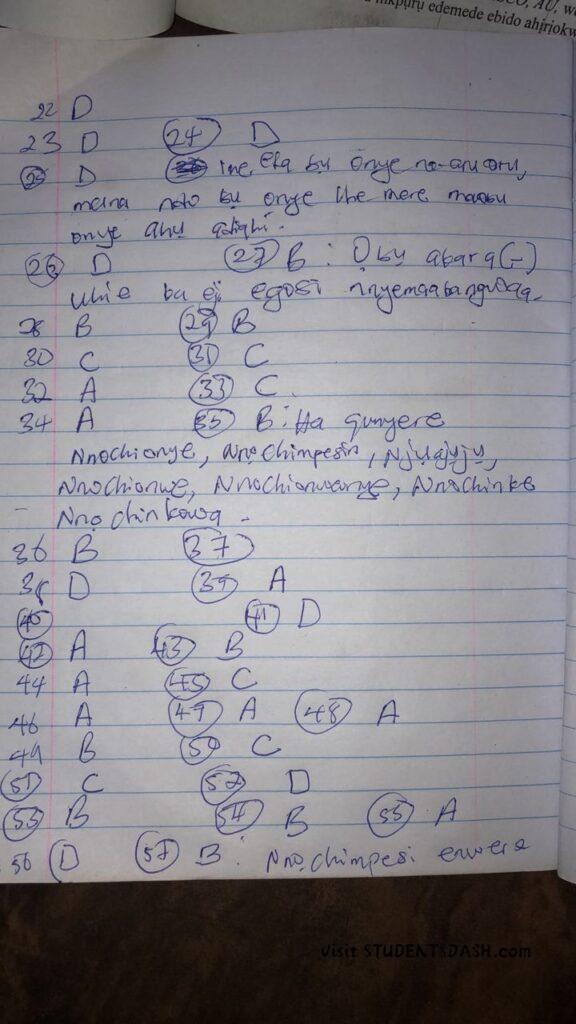 AU,
edemede ebido
22 D
23 D 24 D
25 D ime, efa bu onye na-aru oru,
mana nato bu onye ihe mere
onye ahu
26 D 27 B : Obu abara (-)
uhie ba eji egosi
28 B 29 B
30 C 31 C
32 A 33 C.
34 A 35 B : Ha gunyere
Nnochionye, Nnochimpesin, Njụajụjụ,
Nnochionwe, Nnochionwonye, Nnochinke
Nnọchinkowa.
36 B 37
38 D 39 A
40 41 D
42 A 43 B
44 A 45 C
46 A 47 A 48 A
49 B 50 C
51 C 52 D
53 B 54 B 55 A
56 D 57 B : Nnọchimpesi enwere
Visit STUDENTSDASH.com